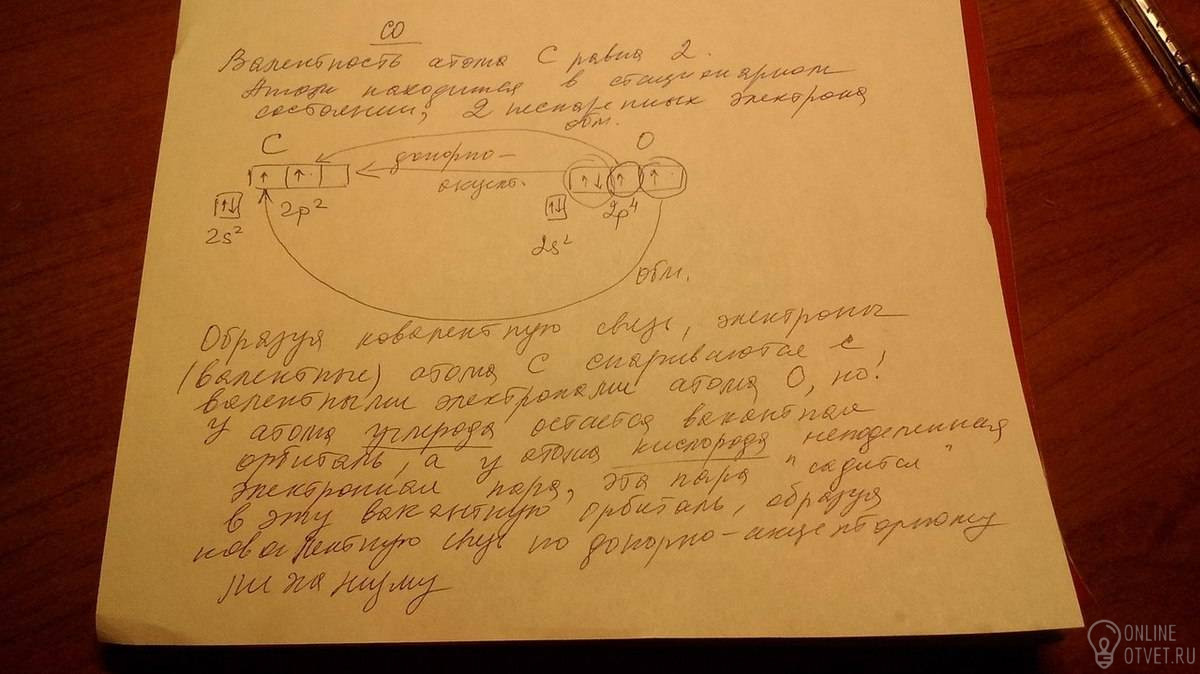 CO
Валентность атома С равна 2.
Атом находится в стационарном
состоянии, 2 неспаренных электрона
обм.
C
O
донорно-
акцепт.
↑ ↑
↑↓ ↑ ↑
↑↓
2p²
↑↓
2p⁴
2s²
2s²
обм.
Образуя ковалентную связь, электроны
(валентные) атома С спариваются с
валентными электронами атома О, но!
У атома углерода остается вакантная
орбиталь, а у атома кислорода неподеленная
электронная пара, эта пара "садится"
в эту вакантную орбиталь, образуя
ковалентную связь по донорно-акцепторному
ONLINE
OTVET.RU